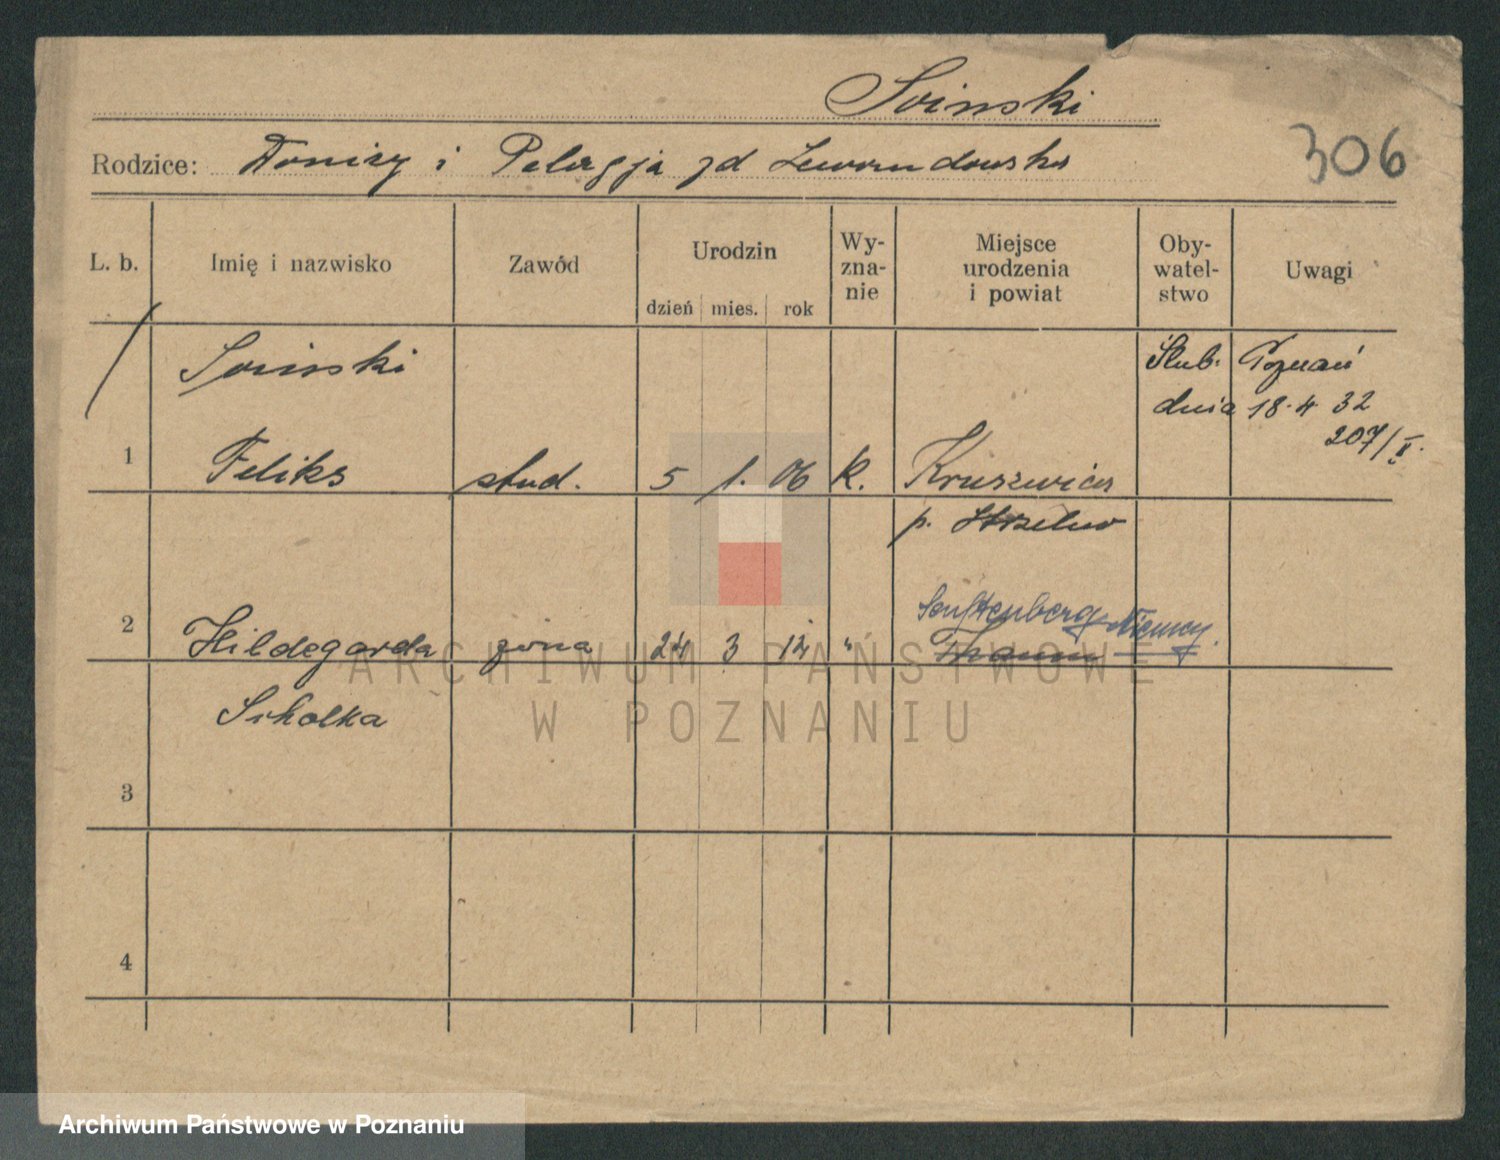 Soinski
306
Rodzice: Donizy i Pelagja zd Lewandowska
L. b. Imię i nazwisko Zawód Urodzin Wy-zna-nie Miejsce urodzenia i powiat Oby-watel-stwo Uwagi
dzień mies. rok
Soinski Ślub. Poznań
dnia 18.4 32
207/II.
1 Feliks stud. 5 1. 06 k. Kruszwica
p. Strzelno
Senftenberg Niemcy.
2 Hildegarda żona 24 3 12 "
Scholka
3
4
ARCHIWUM PAŃSTWOWE
W POZNANIU
Archiwum Państwowe w Poznaniu